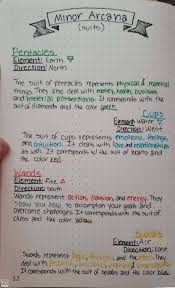 Minor Arcana
(suits)
Pentacles
Element: Earth
Direction: North
The suit of pentacles represents physical & material
things. They also deal with money, health, business,
and material possessions. It corresponds with the suit
of diamonds and the color green.
Cups
Element: Water
Direction: West
The suit of cups represents emotions, feelings,
and intuition. It deals with love and relationships
as well. It corresponds w/ the suit of hearts and
the color red.
Wands
Element: Fire
Direction: South
Wands represent action, passion, and energy. They
show you key to accomplish your goals and
overcome challenges. It corresponds with the suit of
clubs and the color yellow.
Swords
Element: Air
Direction: East
Swords represent and the They
deal with
It corresponds with the suit of spades and the color blue.
32